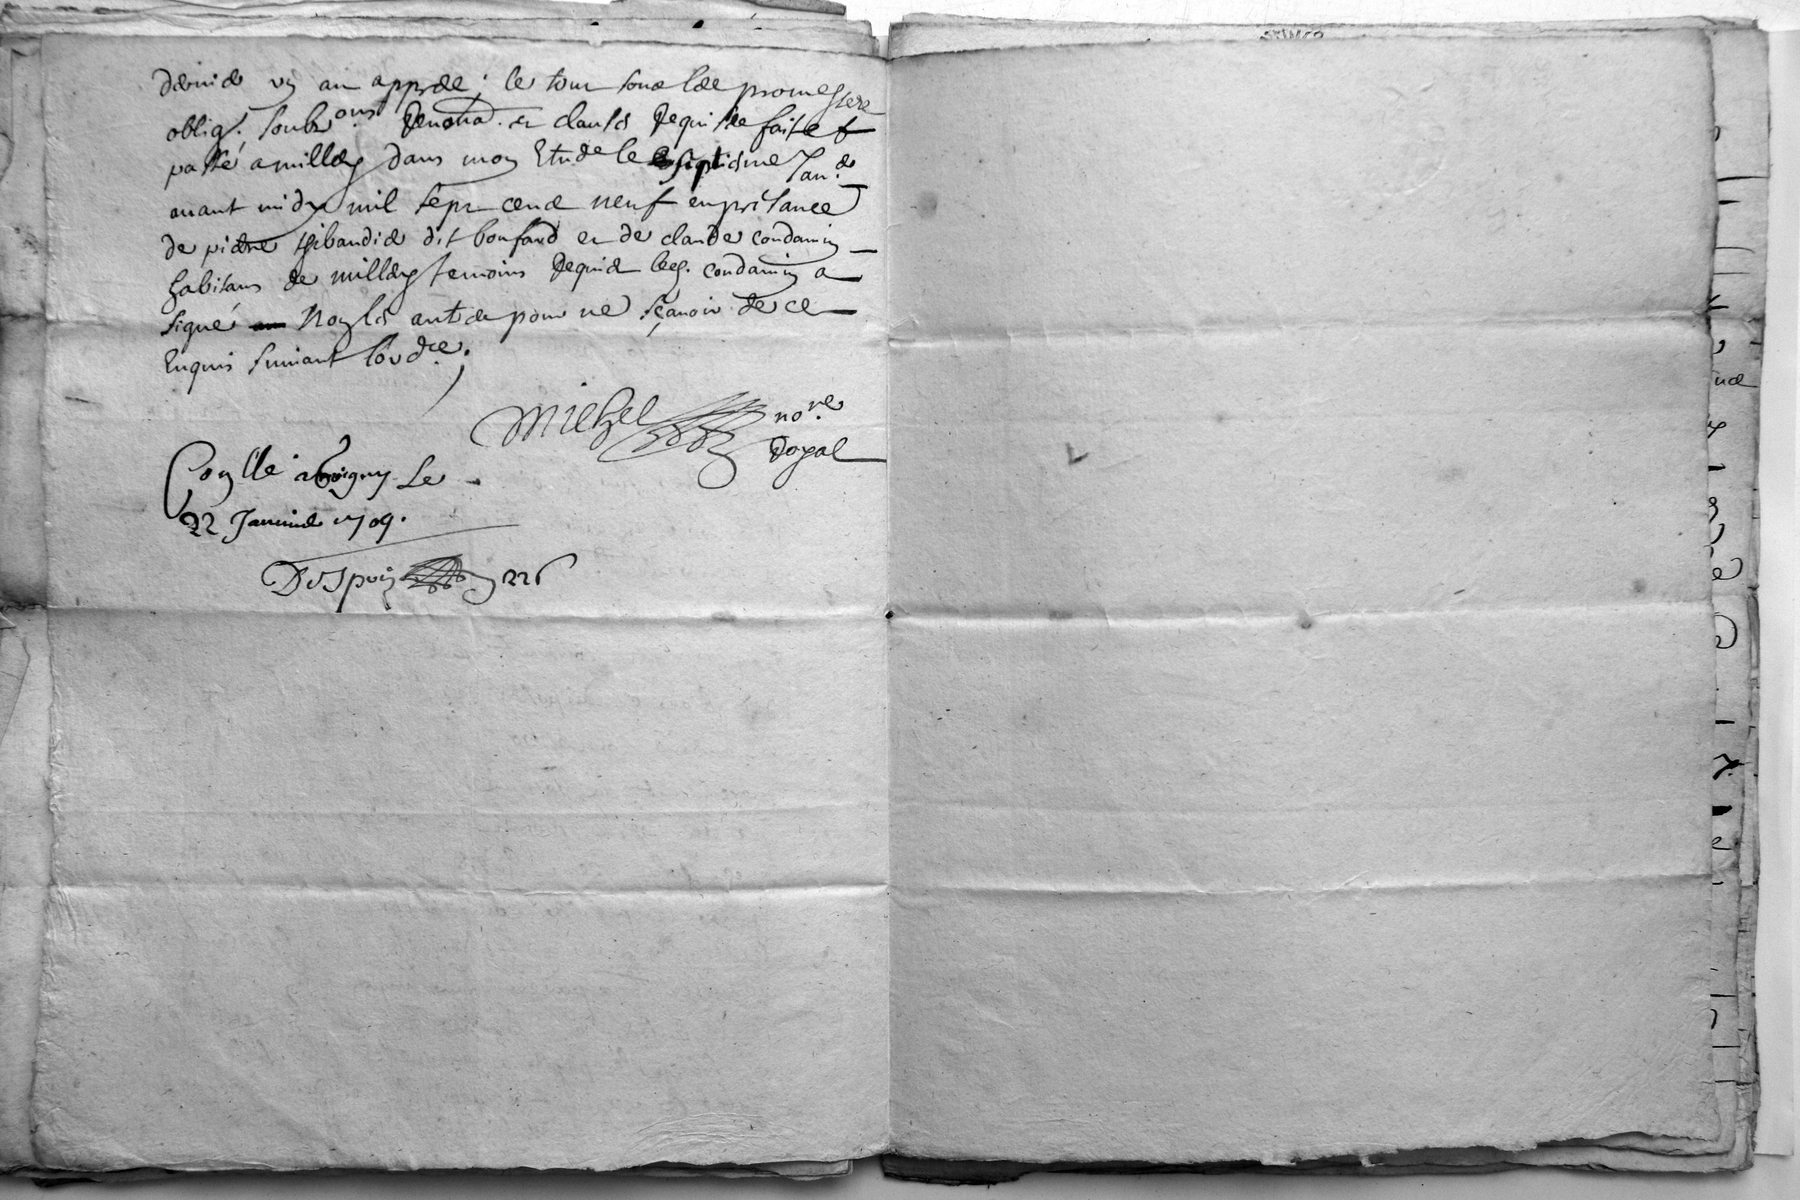 dernier un an apprès ; le tout soub les promesses
oblig. soubons. Renona. et clauses Requises fait et
passé a milley dans mon Etude le septième Jan.er
avant midy mil sept cent neuf en presance
de pierre thibaudier dit bonfard et de claude condamin
habitans de milley temoins Requis led. condamin a
signé Non les autres pour ne sçavoir de ce
Enquis suivant l'ord.ce ;
Michel no.re
Royal
Con.lle a le
22 Janvier 1709.
Despuis 22 s